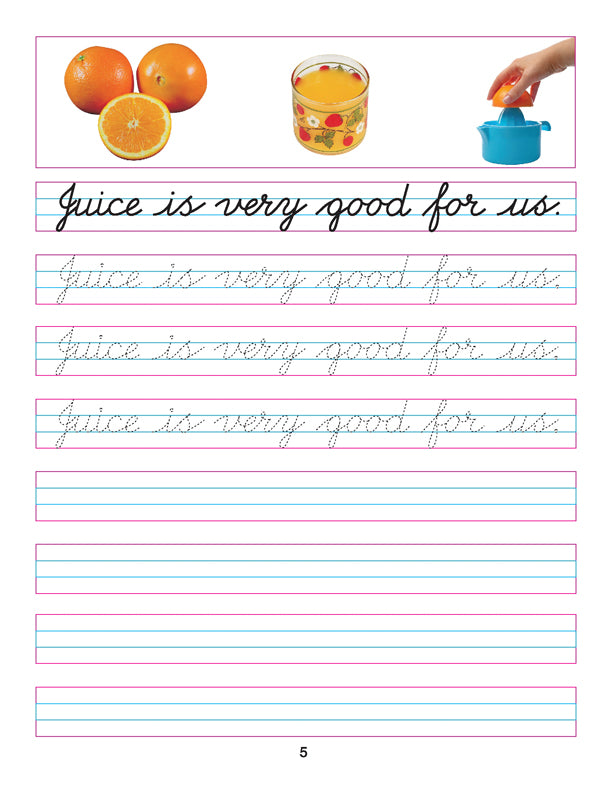 Juice is very good for us.
Juice is very good for us.
Juice is very good for us.
Juice is very good for us.
5